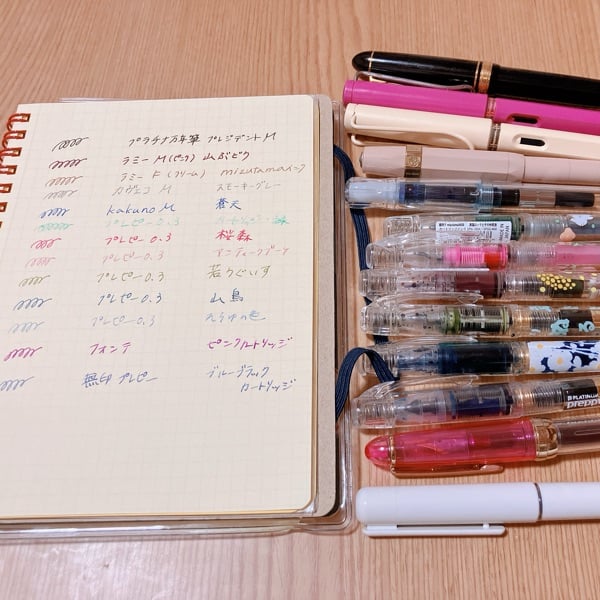 プラチナ万年筆 プレジデント M
ラミー M (ピンク) 山ぶどう
ラミー F (クリーム) mizutamaインク
カヴェコ M スモーキーグレー
kakuno M 蒼天
プレピー 0.3 カートリッジ 緑
プレピー 0.3 桜森
プレピー 0.3
プレピー 0.3 若うぐいす
プレピー 0.3 山鳥
プレピー 0.3
フォンテ ピンクカートリッジ
無印 プレピー ブルーブラック
カートリッジ
PLATINUM
preppy